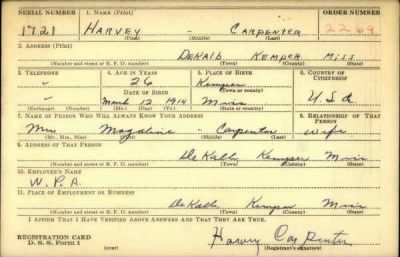 SERIAL NUMBER 1. NAME (Print) ORDER NUMBER
1721 HARVEY - CARPENTER 2269
(First) (Middle) (Last)
2. ADDRESS (Print)
DeKalb Kemper Miss
(Number and street or R. F. D. number) (Town) (County) (State)
3. TELEPHONE 4. AGE IN YEARS 5. PLACE OF BIRTH 6. COUNTRY OF CITIZENSHIP
26 Kemper
(Town or county)
DATE OF BIRTH
March 12 1914 Miss U.S.A
(Exchange) (Number) (Mo.) (Day) (Yr.) (State or country)
7. NAME OF PERSON WHO WILL ALWAYS KNOW YOUR ADDRESS 8. RELATIONSHIP OF THAT PERSON
Mrs Magaline - Carpenter wife
(Mr., Mrs., Miss) (First) (Middle) (Last)
9. ADDRESS OF THAT PERSON
DeKalb Kemper Miss
(Number and street or R. F. D. number) (Town) (County) (State)
10. EMPLOYER'S NAME
W.P.A.
11. PLACE OF EMPLOYMENT OR BUSINESS
DeKalb Kemper Miss
(Number and street or R. F. D. number) (Town) (County) (State)
I AFFIRM THAT I HAVE VERIFIED ABOVE ANSWERS AND THAT THEY ARE TRUE.
REGISTRATION CARD
D. S. S. Form 1 (over) Harvey Carpenter
(Registrant's signature)